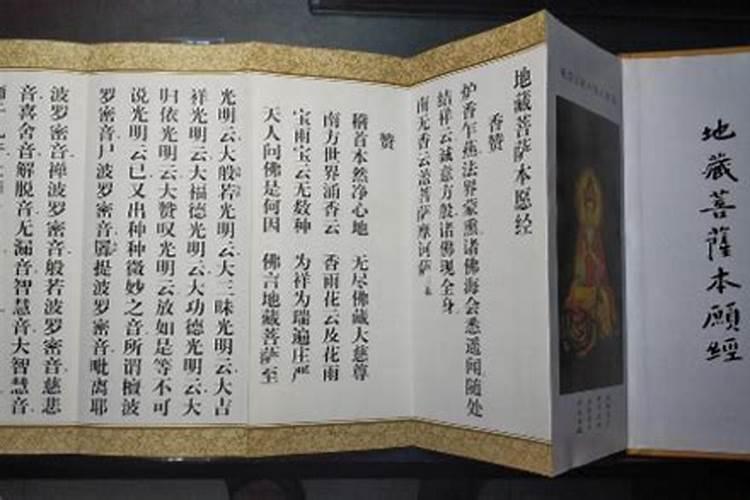 地藏菩薩本願經
地藏菩萨本愿经
香赞
炉香乍爇法界蒙熏诸佛海会悉遥闻随处
结祥云诚意方殷诸佛现全身
南无香云盖菩萨摩诃萨
赞
稽首本然净心地 无尽佛藏大慈尊
南方世界涌香云 香雨花云及花雨
宝雨宝云无数种 为祥为瑞遍庄严
天人问佛是何因 佛言地藏菩萨至
光明云大般若光明云大三昧光明云大吉
祥光明云大福德光明云大功德光明云大
归依光明云大赞叹光明云放如是等不可
说光明云已又出种种微妙之音所谓檀波
罗密音尸波罗密音羼提波罗密音毗离耶
波罗密音禅波罗密音般若波罗密音慈悲
音喜舍音解脱音无漏音智慧音大智慧